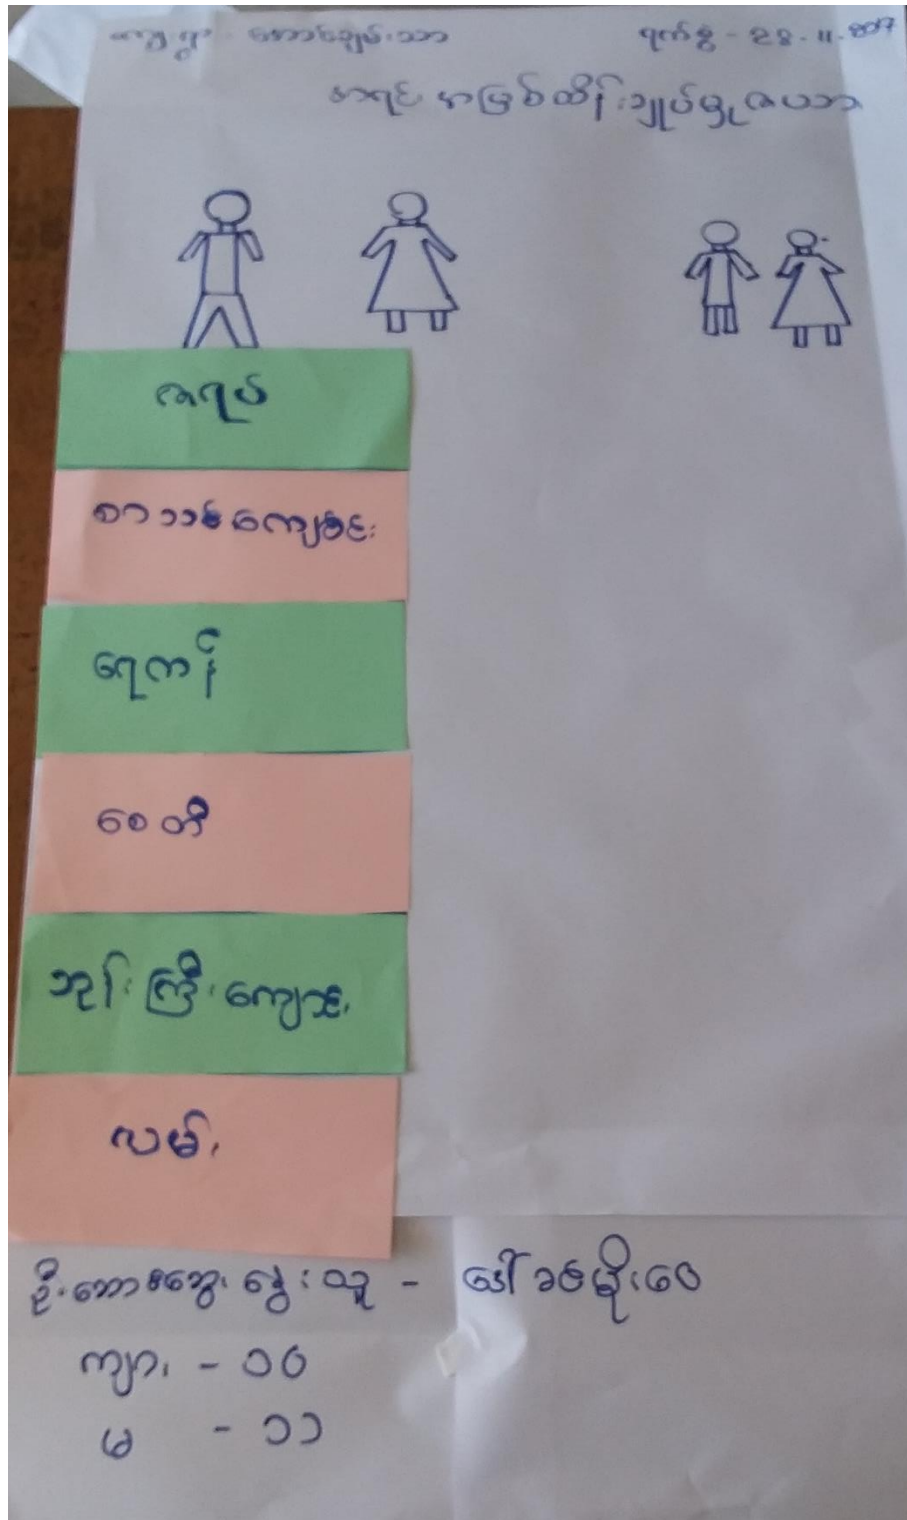 ကျေးရွာ - တောင်ချမ်းသာ ရက်စွဲ - 28.11.2017
အရင်းအမြစ်ထိန်းချုပ်မှုဇယား
ဇရပ်
စာသင်ကျောင်း
ရေကန်
စေတီ
ဘုန်းကြီးကျောင်း
လမ်း
ဦးဆောင်ဆွေးနွေးသူ - ဒေါ်ခင်မိုးဝေ
ကျား - ၁၀
မ - ၁၁